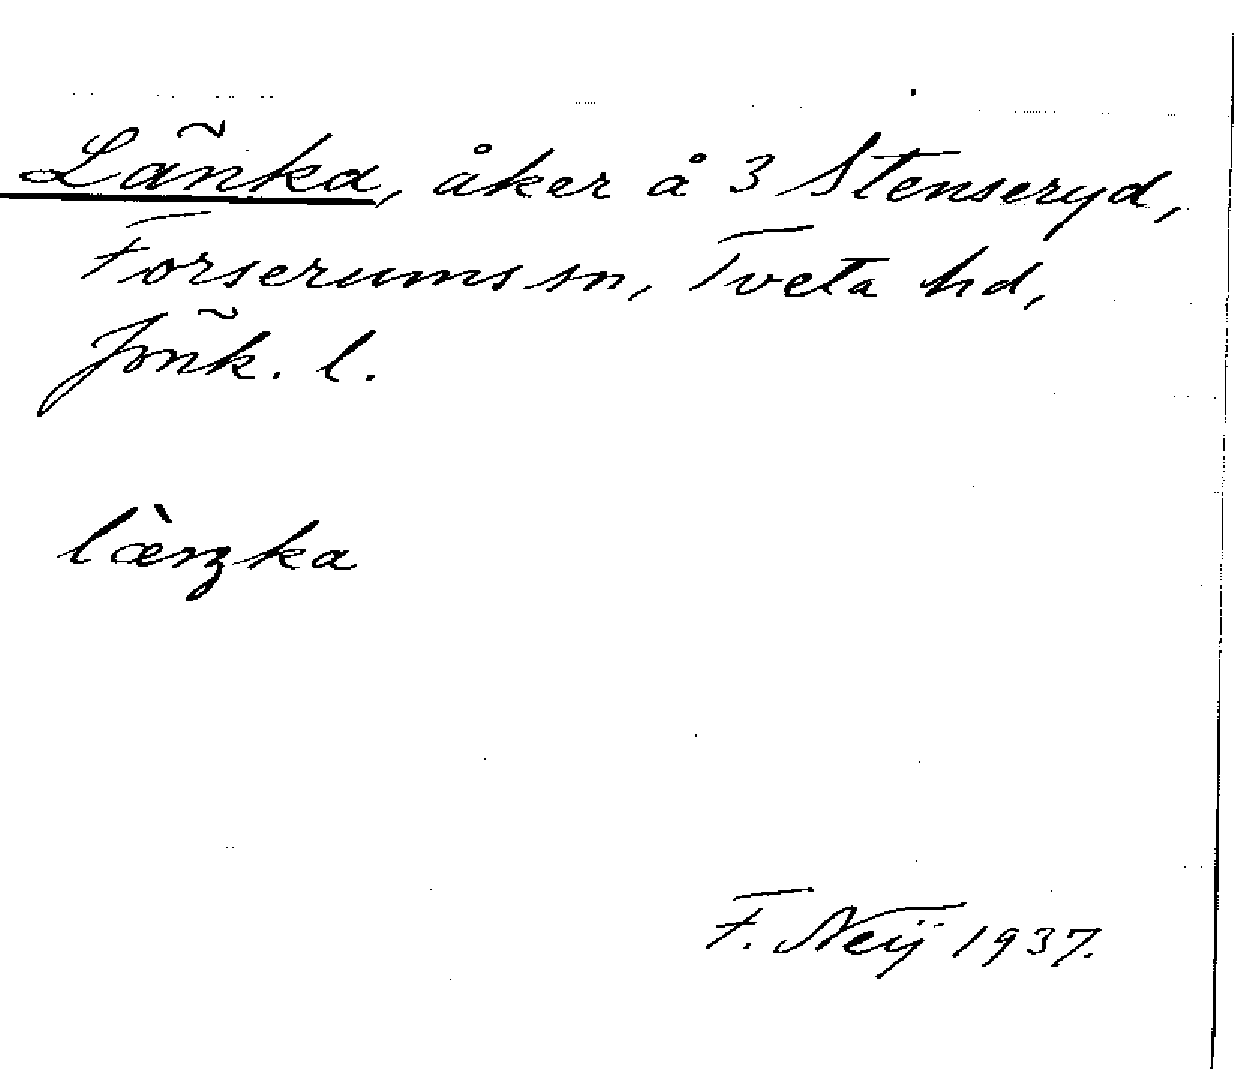 Länka, åker å 3 Stenseryd,
Forserums sn, Tveta hd,
Jönk. l.
læ̀ŋka
F. Neij 1937.